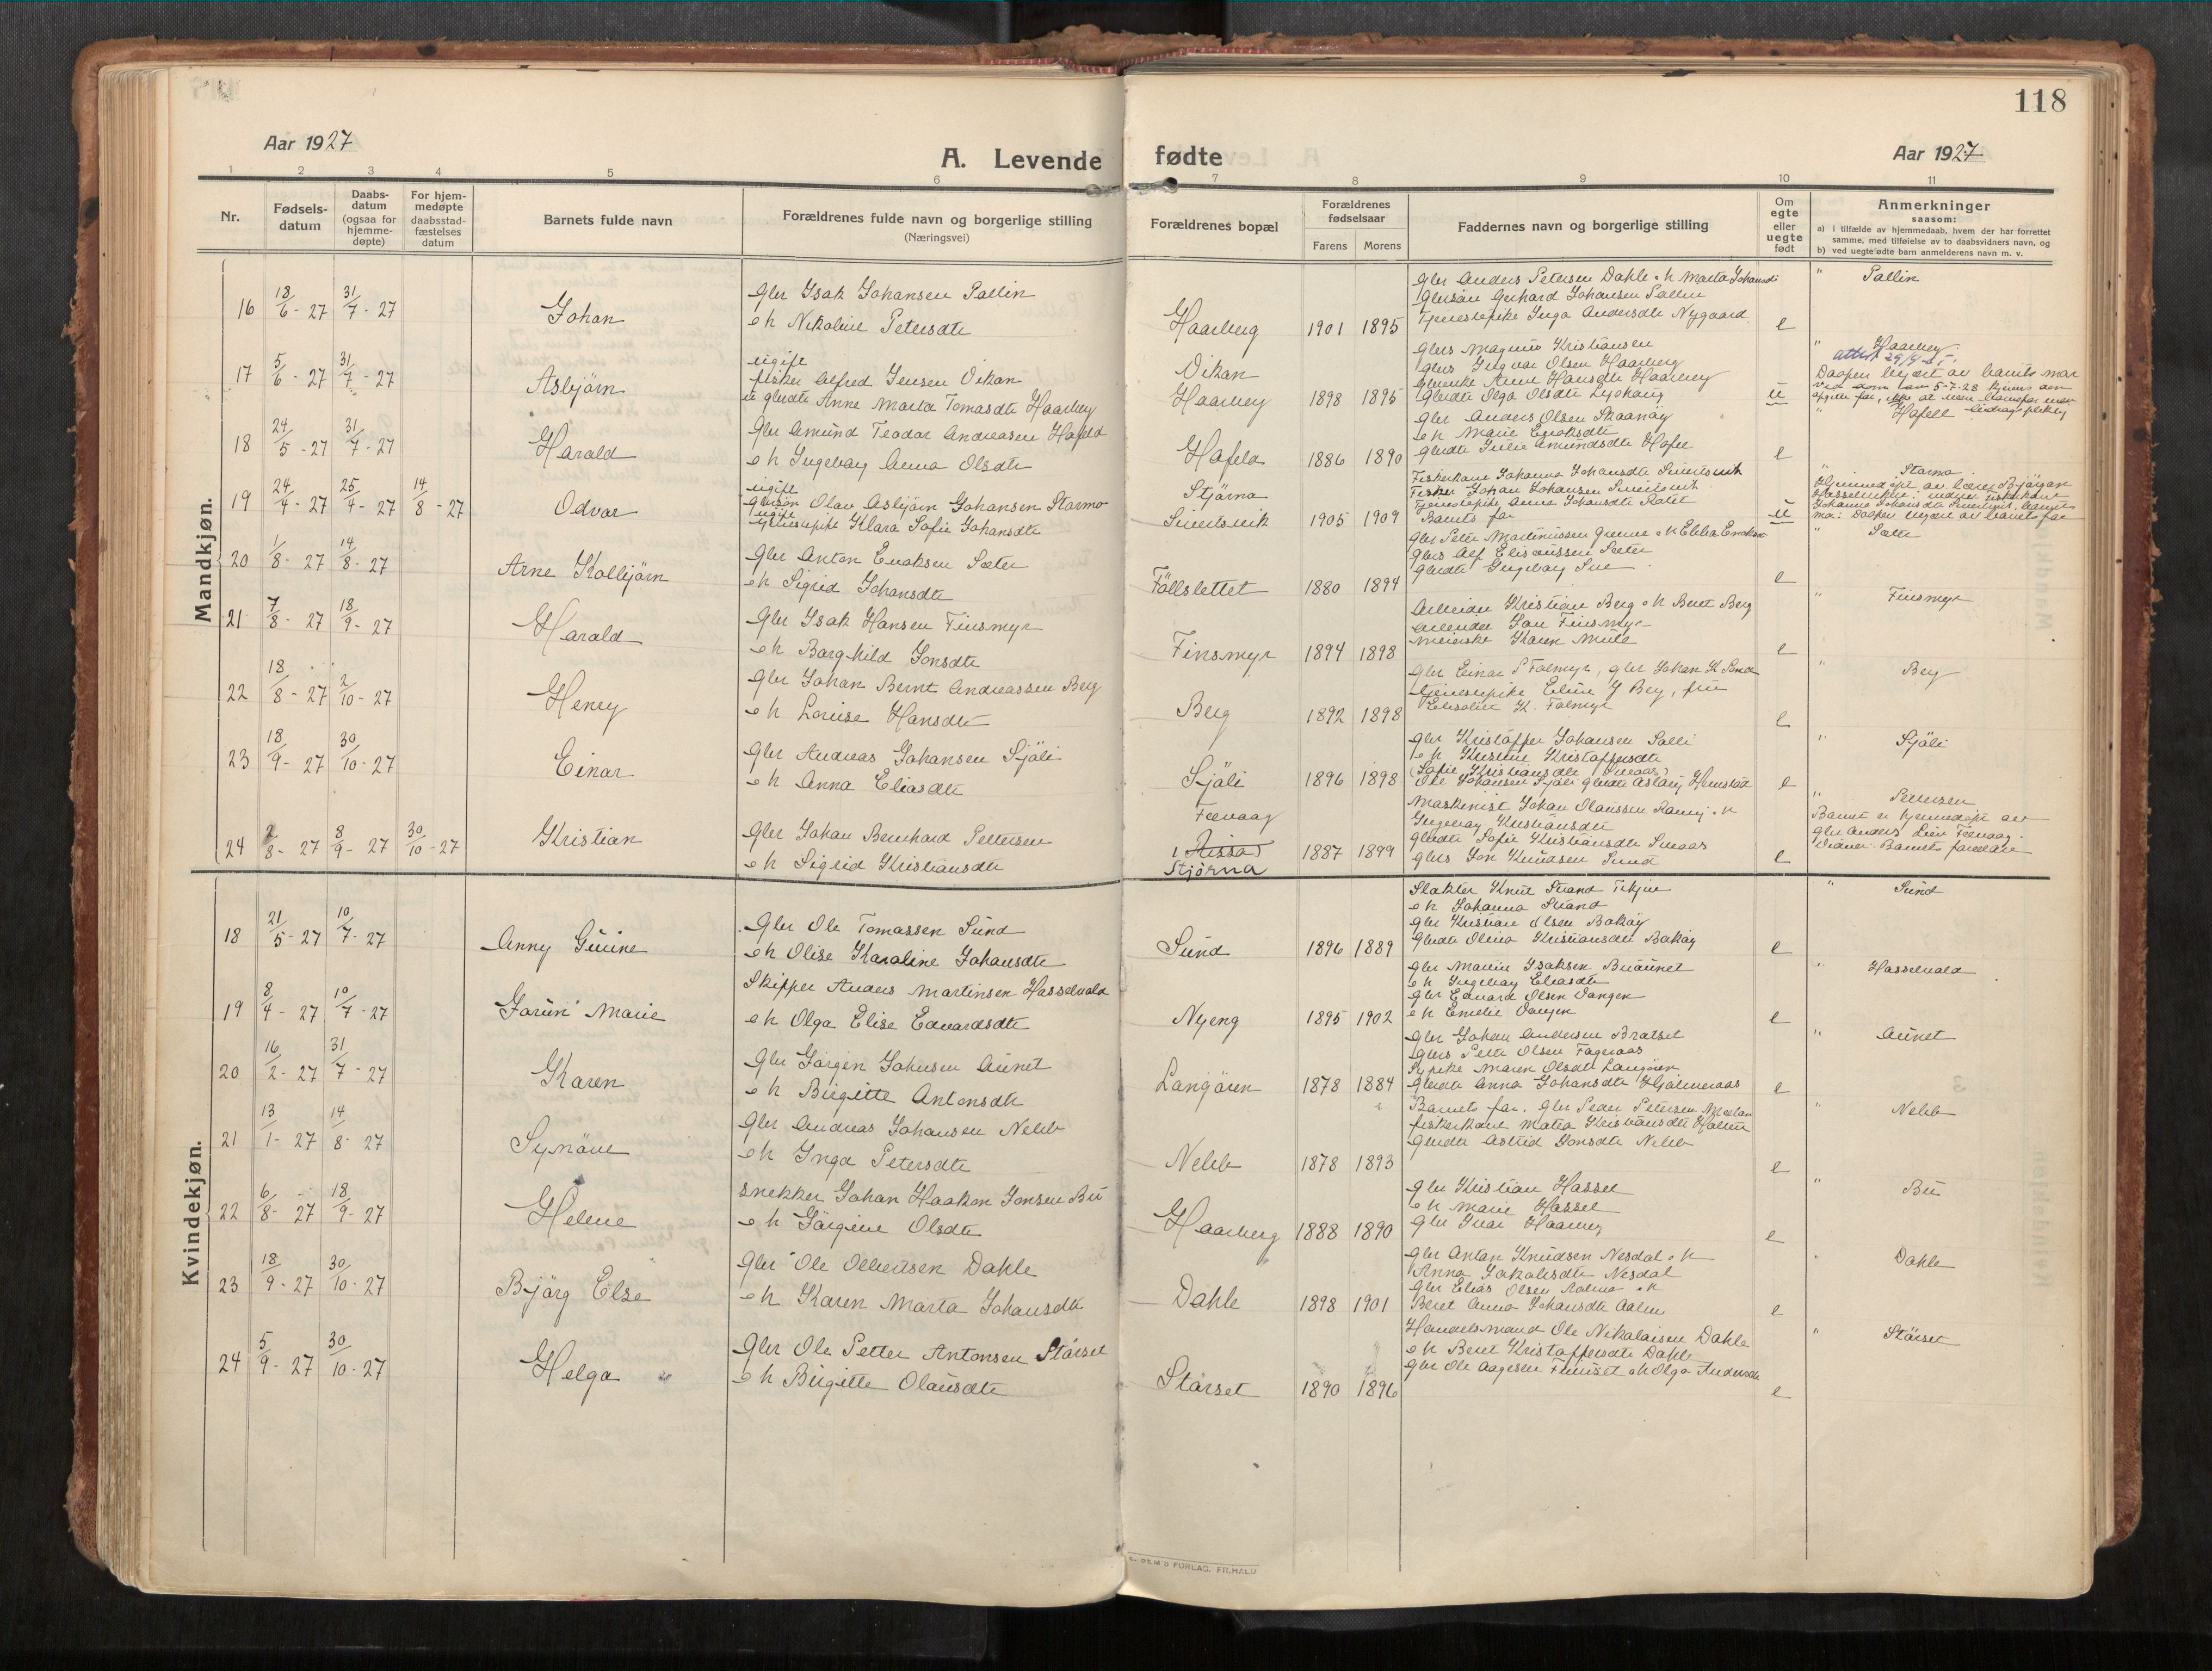 118
Aar 1927
A. Levende fødte
Aar 1927
1 2 3 4 5 6 7 8 9 10 11
Nr.
Fødsels-
datum
Daabs-
datum
(ogsaa for
hjemme-
døpte)
For hjem-
medøpte
daabsstad-
fæstelses
datum
Barnets fulde navn
Forældrenes fulde navn og borgerlige stilling
(Næringsvei)
Forældrenes bopæl
Forældrenes
fødselsaar
Farens Morens
Faddernes navn og borgerlige stilling
Om
egte
eller
uegte
født
Anmerkninger
saasom:
a) i tilfælde av hjemmedaab, hvem der har forrettet
samme, med tilføielse av to daabsvidners navn, og
b) ved uegte fødte barn anmelderens navn m. v.
Mandkjøn.
16 18/6 - 27 31/7 - 27 Johan
Gbr Isak Johansen Sallin
o h Nikoline Petersdtr
Haarberg 1901 1895
Gbr Anders Petersen Dahle o h Marta Johansdt
Gbrsøn Gerhard Johansen Sallin
Tjenestepike Inga Andersdtr Nygaard
e " Sallin
17 5/6 - 27 31/7 - 27 Asbjørn
ugift
fisker Alfred Jensen Vikan
u gbrdtr Anne Marta Tomasdtr Haarberg
Vikan
Haarberg 1898 1895
Gbrs Magnus Kristiansen
Gbrs Ingvar Olsen Haarberg
Anne Hansdtr Haarberg
Gbrdtr Olga Olsdtr
u " Haarberg
Daapen begjært av barnets mor
18 24/5 - 27 31/7 - 27 Harald
Gbr Amund Teodor Andreasen Hafeld
o h Ingebay Anna Olsdtr
Hafeld 1886 1890
Gbr Anders Olsen Skaanøy
o h Marie Eriksdtr
Gbrdtr Julie Amundsdtr Hafel
e " Hafell
19 24/4 - 27 25/4 - 27 14/8 - 27 Odvar
ugift
gbrsøn Olav Asbjørn Johansen Starmo
ugift
Klara Sofie Johansdtr
Stjørna
1905 1909
Fiskerkone Johanna Johansdtr
Fisker Johan Johansen
Tjenestepike Anna Johansdtr
Barnets far
u " Starmo
Hjemmedøpt av
mor. Daapen begjært av barnets far
20 1/8 - 27 14/8 - 27 Arne Kolbjørn
Gbr Anton Eriksen Sæter
o h Sigrid Johansdtr
Føllslettet 1880 1894
Gbr Peter Martinussen
Gbrs Alf Eliseussen Sæter
Gbrdtr Ingebay
e " Sæter
21 7/8 - 27 18/9 - 27 Harald
Gbr Isak Hansen Finsmyr
o h Borghild Jonsdtr
Finsmyr 1894 1898
Arbeider Kristian Berg o h Beret Berg
Jon Finsmyr
meierske Karen
e " Finsmyr
22 18/8 - 27 2/10 - 27 Henry
Gbr Johan Bernt Andreassen Berg
o h Louise Hansdtr
Berg 1892 1898
Gbr Einar P Falmyr, gbr Johan K
tjenestepike Eline J Berg, fru
K. Falmyr
e " Berg
23 18/9 - 27 30/10 - 27 Einar
Gbr Andreas Johansen Sjøli
o h Anna Eliasdtr
Sjøli 1896 1898
Gbr Kristoffer Johansen Salli
o h Kristine Kristoffersdtr
(Sofie Kristiansdtr Sneaas)
Ole Johansen Sjøli gbrdtr Aslaug Hemstad
e " Sjøli
24 8 - 27 8/9 - 27 30/10 - 27 Kristian
Gbr Johan Bernhard Pettersen
o h Sigrid Kristiansdtr
Fevaag
i Rissa
Stjørna 1887 1899
Maskinist Johan Olaussen Ramy o h
Ingebay Kristiansdtr
Gbrdtr Sofie Kristiansdtr Sneaas
Gbrs Jon Knudsen Sund
e " Pettersen
Barnet er hjemmedøpt av
gbr Anders Fevaag.
Vidner: Barnets forældre
Kvindekjøn.
18 21/5 - 27 10/7 - 27 Anny Guine
Gbr Ole Tomassen Sund
o h Olise Karoline Johansdtr
Sund 1896 1889
Slakter Knut Strand
o h Johanna Strand
Gbr Kristian Olsen Bakøy
Gbrdtr Olina Kristiansdtr Bakøy
e " Sund
19 8/4 - 27 10/7 - 27 Jorun Marie
Skipper Anders Martinsen Hasselvald
o h Olga Elise Edvardsdtr
Nyeng 1895 1902
Gbr Martin Isaksen Buaunet
o h Ingebay Eliasdtr
Gbr Edvard Olsen Vangen
o h Emelie Vangen
e " Hasselvald
20 16/2 - 27 31/7 - 27 Karen
Gbr Jørgen Johnsen Aunet
o h Birgitte Antonsdtr
Langøren 1878 1884
Gbr Johan Andersen Bratset
Gbrs Petter Olsen Fageraas
Sypike Maren Olsdtr Langøren
Gbrdtr Anna Johansdtr Hjalmeraas
e " Aunet
21 13/1 - 27 14/8 - 27 Synøve
Gbr Andreas Johansen Nebb
o h Inga Petersdtr
Nebb 1878 1893
Barnets far. Gbr Peder Petersen
fiskerkone Matea Kristiansdtr
Gbrdtr Astrid Jonsdtr Nebb
e " Nebb
22 6/8 - 27 18/9 - 27 Helene
snekker Johan Haakon Jonsen Bu
o h Jørgine Olsdtr
Haarberg 1888 1890
Gbr Kristian Hassel
o h Marie Hassel
Gbr Ivar Haarberg
e " Bu
23 18/9 - 27 30/10 - 27 Bjørg Else
Gbr Ole Olbertsen Dahle
o h Karen Marta Johansdtr
Dahle 1898 1901
Gbr Anton Knudsen Nesdal o h
Anna Jakobsdtr Nesdal
Gbr Elias Olsen Aalmo o h
Beret Anna Johansdtr Aalmo
e " Dahle
24 5/9 - 27 30/10 - 27 Helga
Gbr Ole Petter Antonsen Størset
o h Birgitte Olausdtr
Størset 1890 1896
Handelsmand Ole Nikolaisen Dahle
o h Beret Kristoffersdtr Dahle
Gbr Ole Aagesen o h Olga Andersdtr
e " Størset
FORLAG, FR.HALD